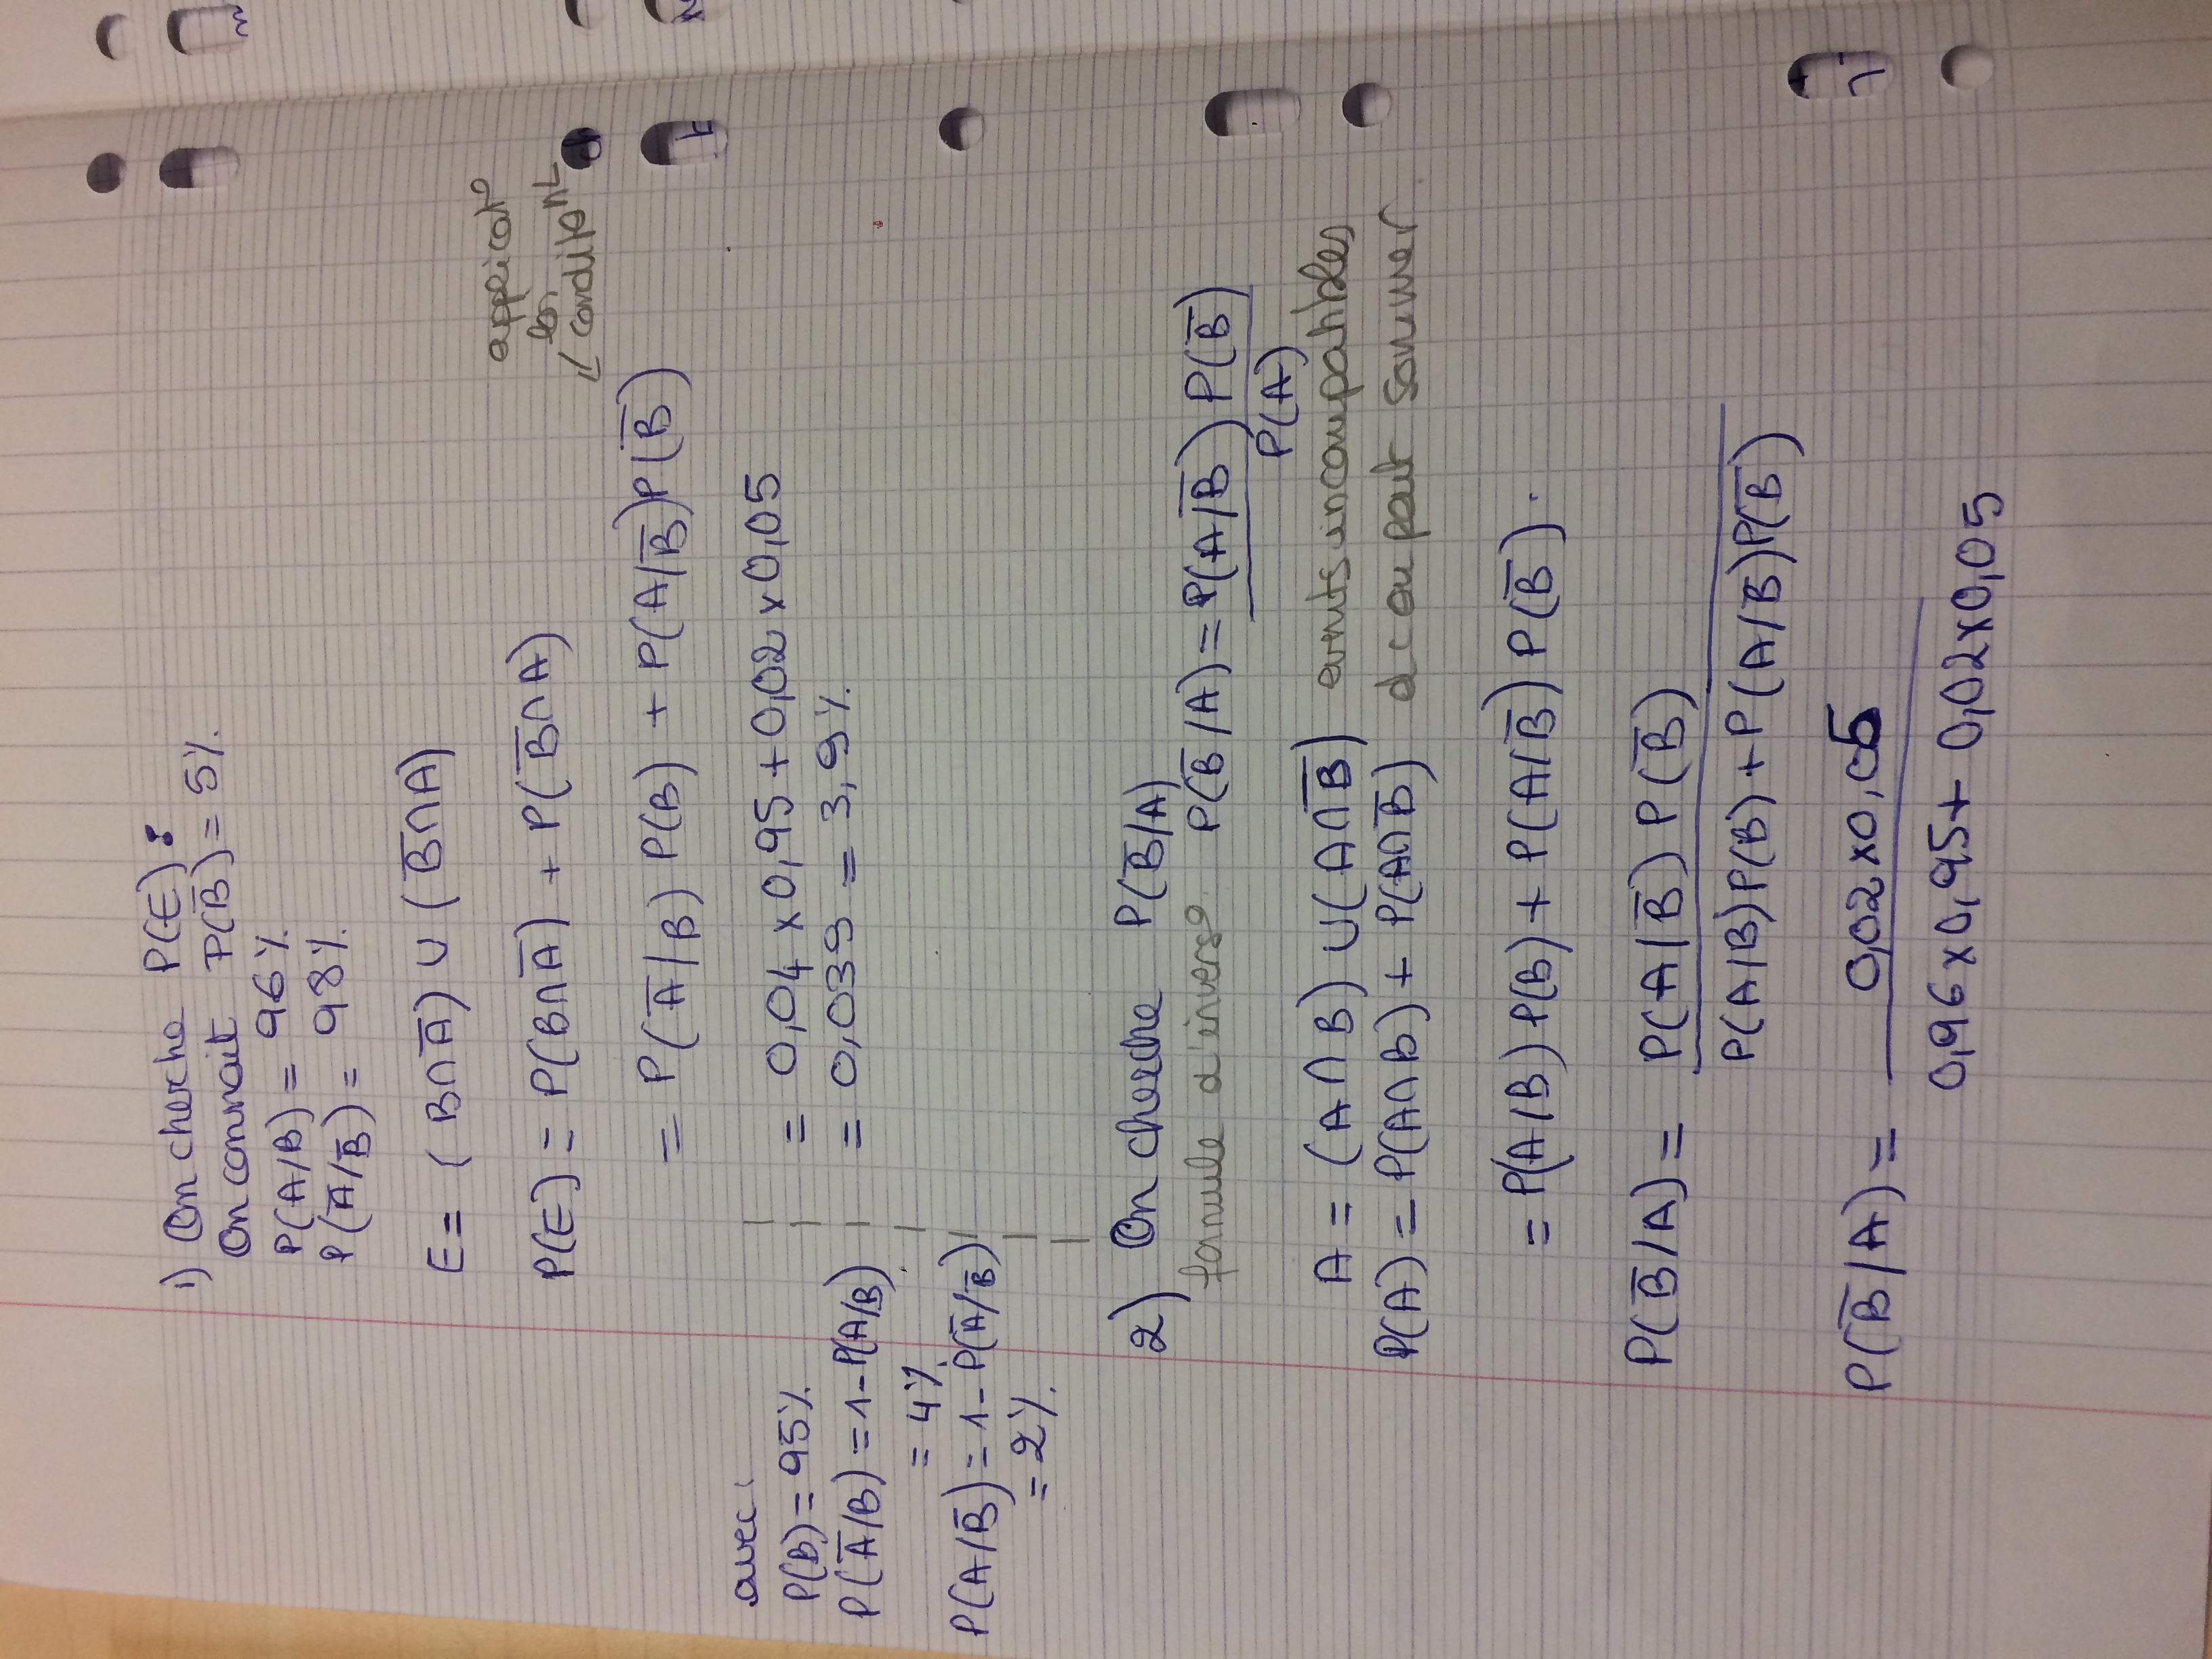 1) On cherche P(E) :
On connait P(B̅) = 5%.
P(A/B) = 96%
P(A̅/B̅) = 98%.
E = (B∩A̅) ∪ (B̅∩A)
P(E) = P(B∩A̅) + P(B̅∩A)
applicat°
condit°nL
= P(A̅/B) P(B) + P(A/B̅)P(B̅)
= 0,04 x 0,95 + 0,02 x 0,05
= 0,039 = 3,9%.
avec :
P(B) = 95%
P(A̅/B) = 1 - P(A/B)
= 4%.
P(A/B̅) = 1 - P(A̅/B̅)
= 2%.
2) On cherche P(B̅/A)
formule d'invers° P(B̅/A) = P(A/B̅) P(B̅)
P(A)
A = (A∩B) ∪ (A∩B̅) evnts incompatibles
P(A) = P(A∩B) + P(A∩B̅) dc on peut sommer.
= P(A/B) P(B) + P(A/B̅) P(B̅).
P(B̅/A) = P(A/B̅) P(B̅)
P(A/B)P(B) + P(A/B̅)P(B̅)
P(B̅/A) = 0,02 x 0,05
0,96 x 0,95 + 0,02 x 0,05